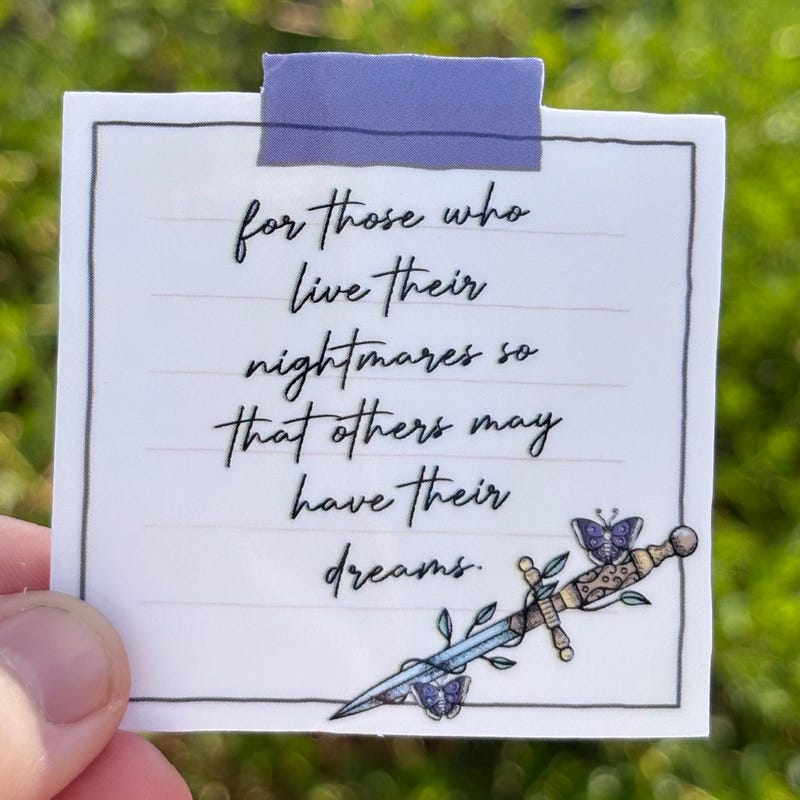 for those who
live their
nightmares so
that others may
have their
dreams.